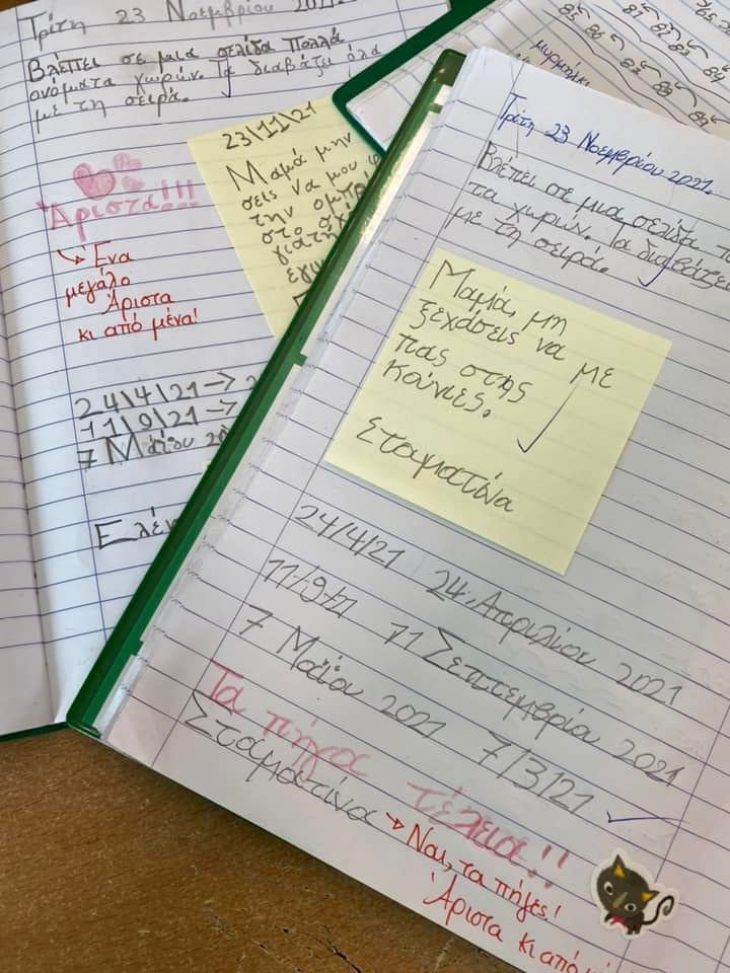 Τρίτη 23 Νοεμβρίου 2021.
Βλέπει σε μια σελίδα πολλά
ονόματα χωρών. Τα διαβάζει όλα
με τη σειρά.
Άριστα!!!
Ένα
μεγάλο
Άριστα
κι από μένα!
24\4\21 →
11\9\21 →
7 Μαΐου
Ελέν
23\11\21
Μαμά μην
σεις να μου
την ομπρ
στο σχ
γιατη
εγιν
85 86 87 87
μυρμήγκι
Τρίτη 23 Νοεμβρίου 2021.
Βλέπει σε μια σελίδα
τα χωρών. Τα διαβάζει
με τη σειρά.
Μαμά, μη
ξεχάσεις να με
πας στης
κούνιες.
Σταματίνα
24/4/21 24 Απριλίου 2021
11/9/21 11 Σεπτεμβρίου 2021
7 Μαΐου 2021 7/3/21
Τα πήγα τέλεια!!
Σταματίνα
Ναι, τα πήγες!
Άριστα κι από